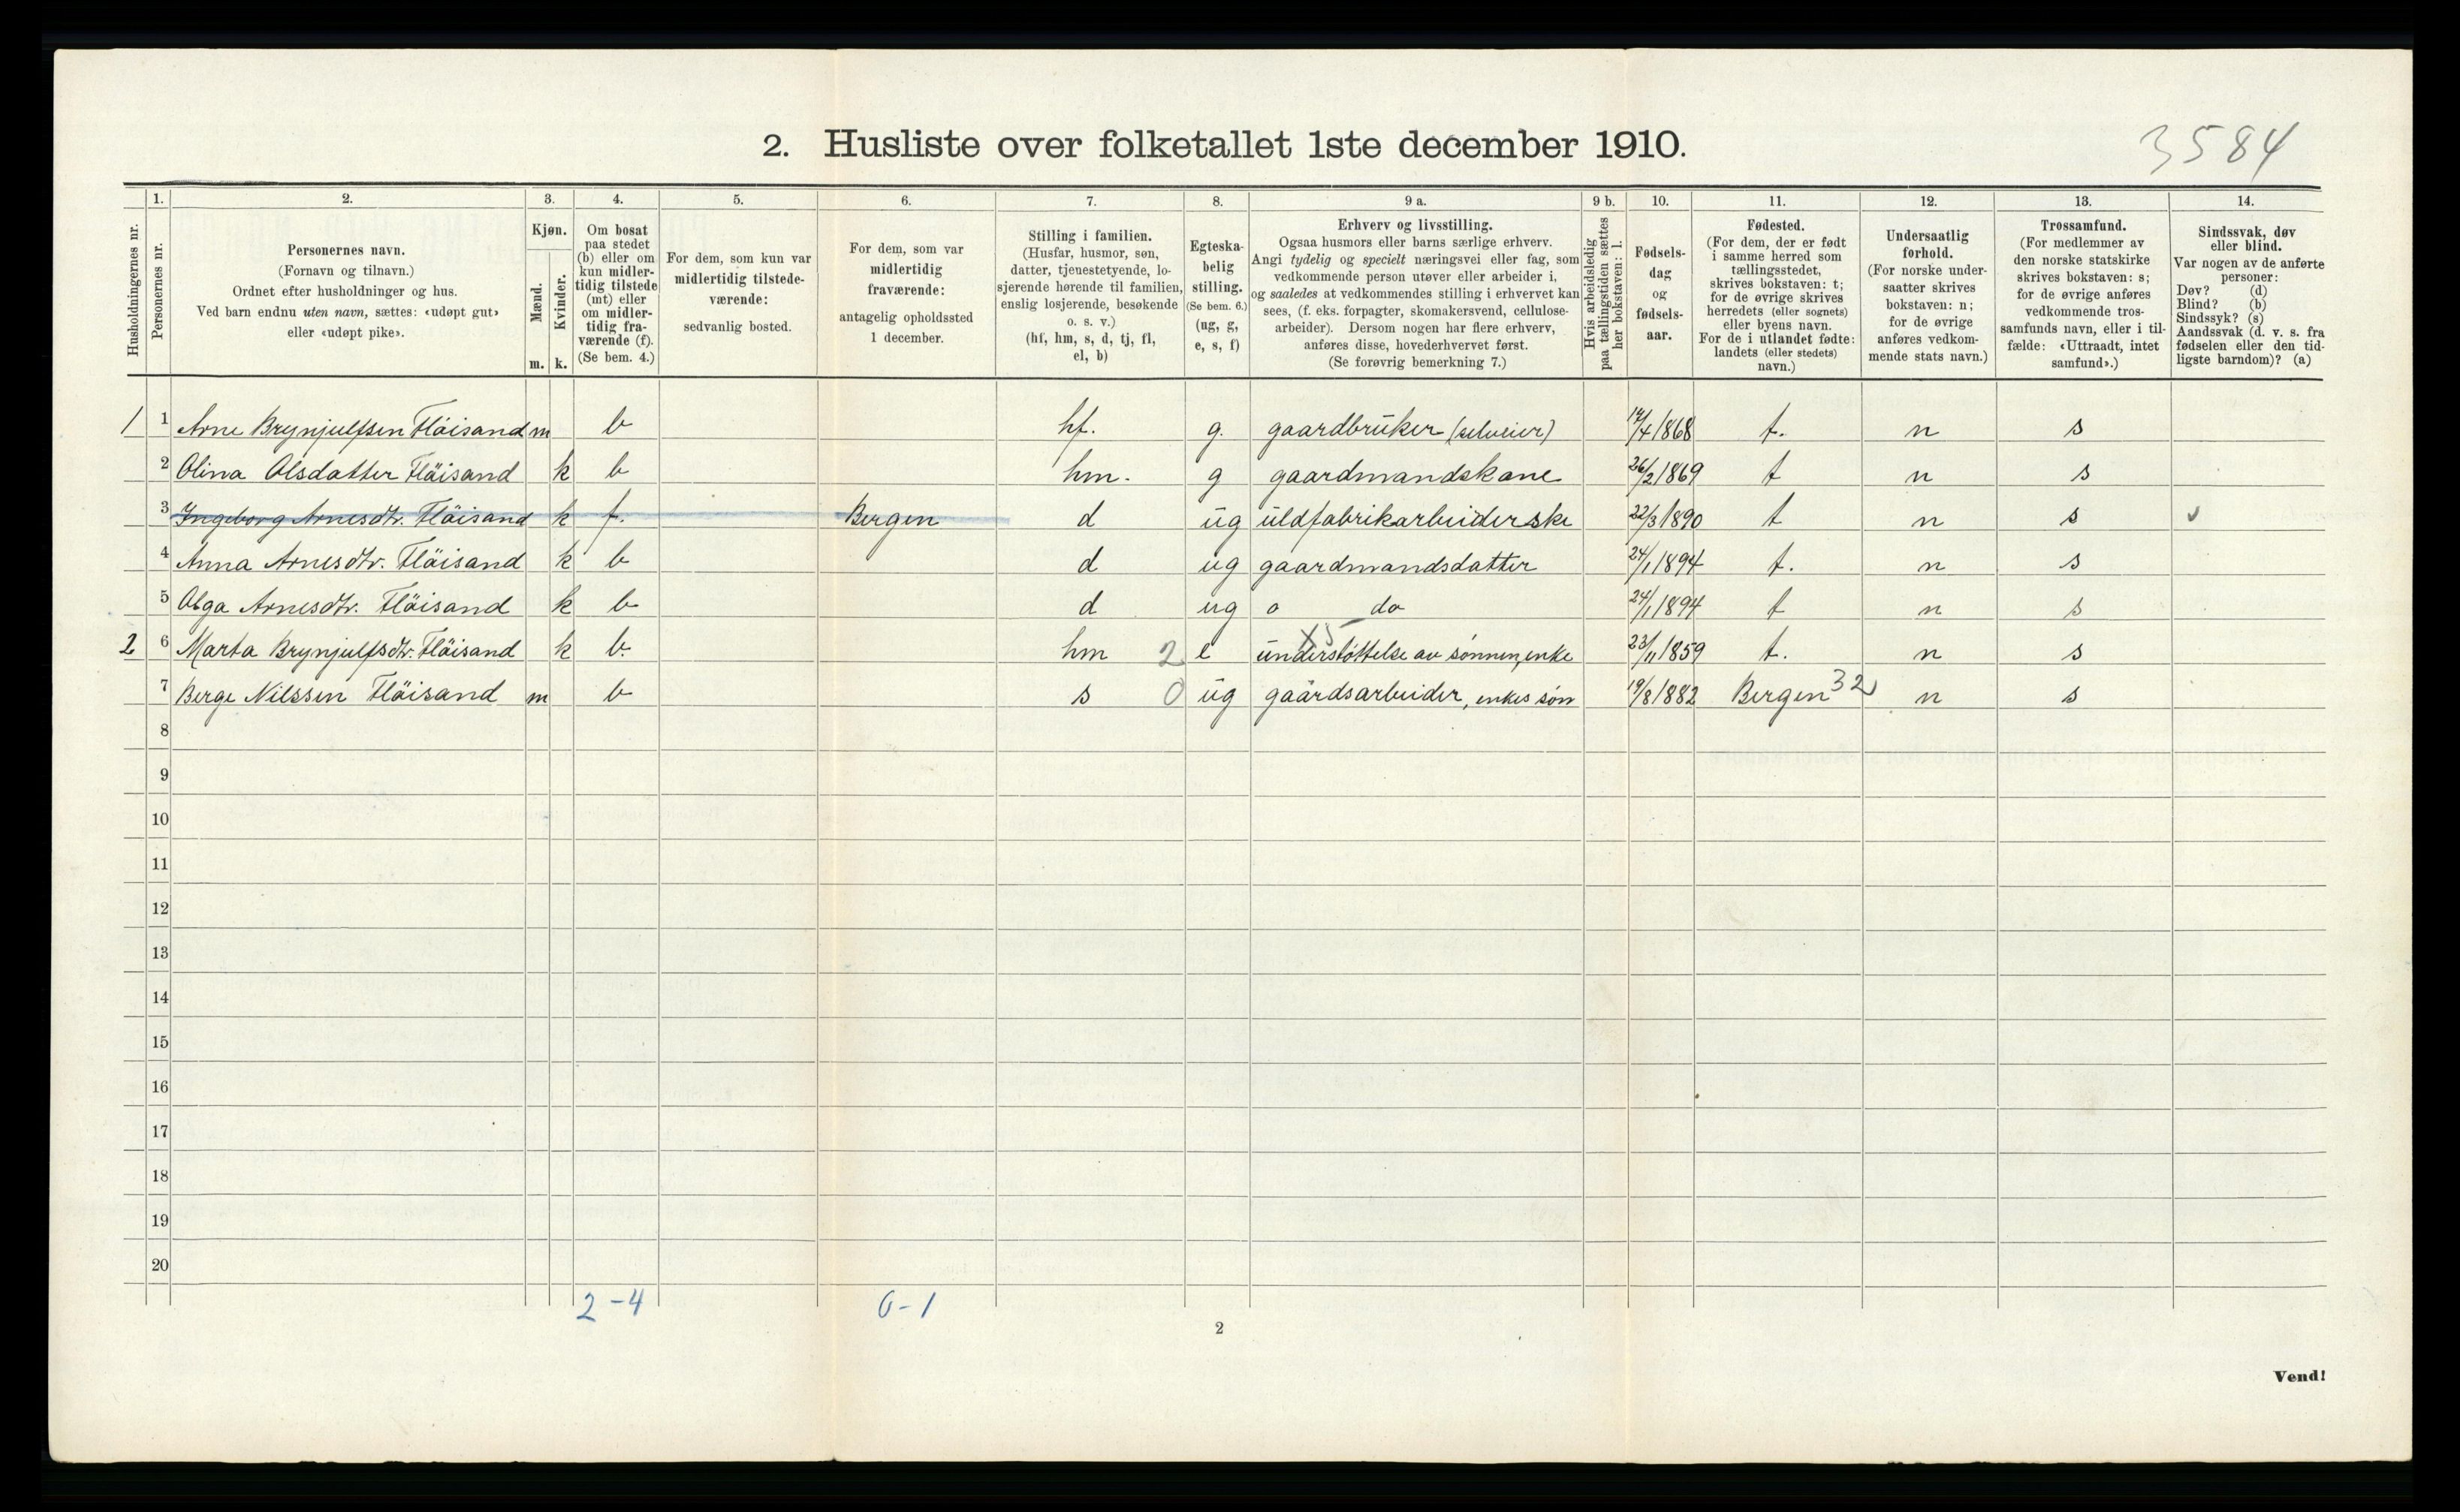 3584
2. Husliste over folketallet 1ste december 1910.
Husholdningernes nr.
1. Personernes nr.
2. Personernes navn.
(Fornavn og tilnavn.)
Ordnet efter husholdninger og hus.
Ved barn endnu uten navn, sættes: «udøpt gut»
eller «udøpt pike».
3. Kjøn.
Mænd. m.
Kvinder. k.
4. Om bosat
paa stedet
(b) eller om
kun midler-
tidig tilstede
(mt) eller
om midler-
tidig fra-
værende (f).
(Se bem. 4.)
5. For dem, som kun var
midlertidig tilstede-
værende:
sedvanlig bosted.
6. For dem, som var
midlertidig
fraværende:
antagelig opholdssted
1 december.
7. Stilling i familien.
(Husfar, husmor, søn,
datter, tjenestetyende, lo-
sjerende hørende til familien,
enslig losjerende, besøkende
o. s. v.)
(hf, hm, s, d, tj, fl,
el, b)
8. Egteska-
belig
stilling.
(Se bem. 6.)
(ug, g,
e, s, f)
9 a. Erhverv og livsstilling.
Ogsaa husmors eller barns særlige erhverv.
Angi tydelig og specielt næringsvei eller fag, som
vedkommende person utøver eller arbeider i,
og saaledes at vedkommendes stilling i erhvervet kan
sees, (f. eks. forpagter, skomakersvend, cellulose-
arbeider). Dersom nogen har flere erhverv,
anføres disse, hovederhvervet først.
(Se forøvrig bemerkning 7.)
9 b. Hvis arbeidsledig
paa tællingstiden sættes
her bokstaven: l.
10. Fødsels-
dag
og
fødsels-
aar.
11. Fødested.
(For dem, der er født
i samme herred som
tællingsstedet,
skrives bokstaven: t;
for de øvrige skrives
herredets (eller sognets)
eller byens navn.
For de i utlandet fødte:
landets (eller stedets)
navn.)
12. Undersaatlig
forhold.
(For norske under-
saatter skrives
bokstaven: n;
for de øvrige
anføres vedkom-
mende stats navn.)
13. Trossamfund.
(For medlemmer av
den norske statskirke
skrives bokstaven: s;
for de øvrige anføres
vedkommende tros-
samfunds navn, eller i til-
fælde: «Uttraadt, intet
samfund».)
14. Sindssvak, døv
eller blind.
Var nogen av de anførte
personer:
Døv? (d)
Blind? (b)
Sindssyk? (s)
Aandssvak (d. v. s. fra
fødselen eller den tid-
ligste barndom)? (a)
1 1 Arne Brynjulfsen Fläisand m b hf. g. gaardbruker (selveier) 14/4 1868 t. n s
2 Olina Olsdatter Fläisand k b hm. g gaardmandskone 26/2 1869 t n s
3 Ingeborg Arnesdtr. Fläisand k f. Bergen d ug uldfabrikarbeiderske 22/3 1890 t n s v
4 Anna Arnesdtr. Fläisand k b d ug gaardmandsdatter 24/1 1894 t. n s
5 Olga Arnesdtr. Fläisand k b d ug o do 24/1 1894 t n s
2 6 Marta Brynjulfsdtr. Fläisand k b. hm 2 e understöttelse av sönnen, enke 23/11 1859 t. n s
7 Berge Nilssen Fläisand m b s 0 ug gaardsarbeider, enkes sön 19/8 1882 Bergen 32 n s
8
9
10
11
12
13
14
15
16
17
18
19
20
2-4 0-1
2
Vend!